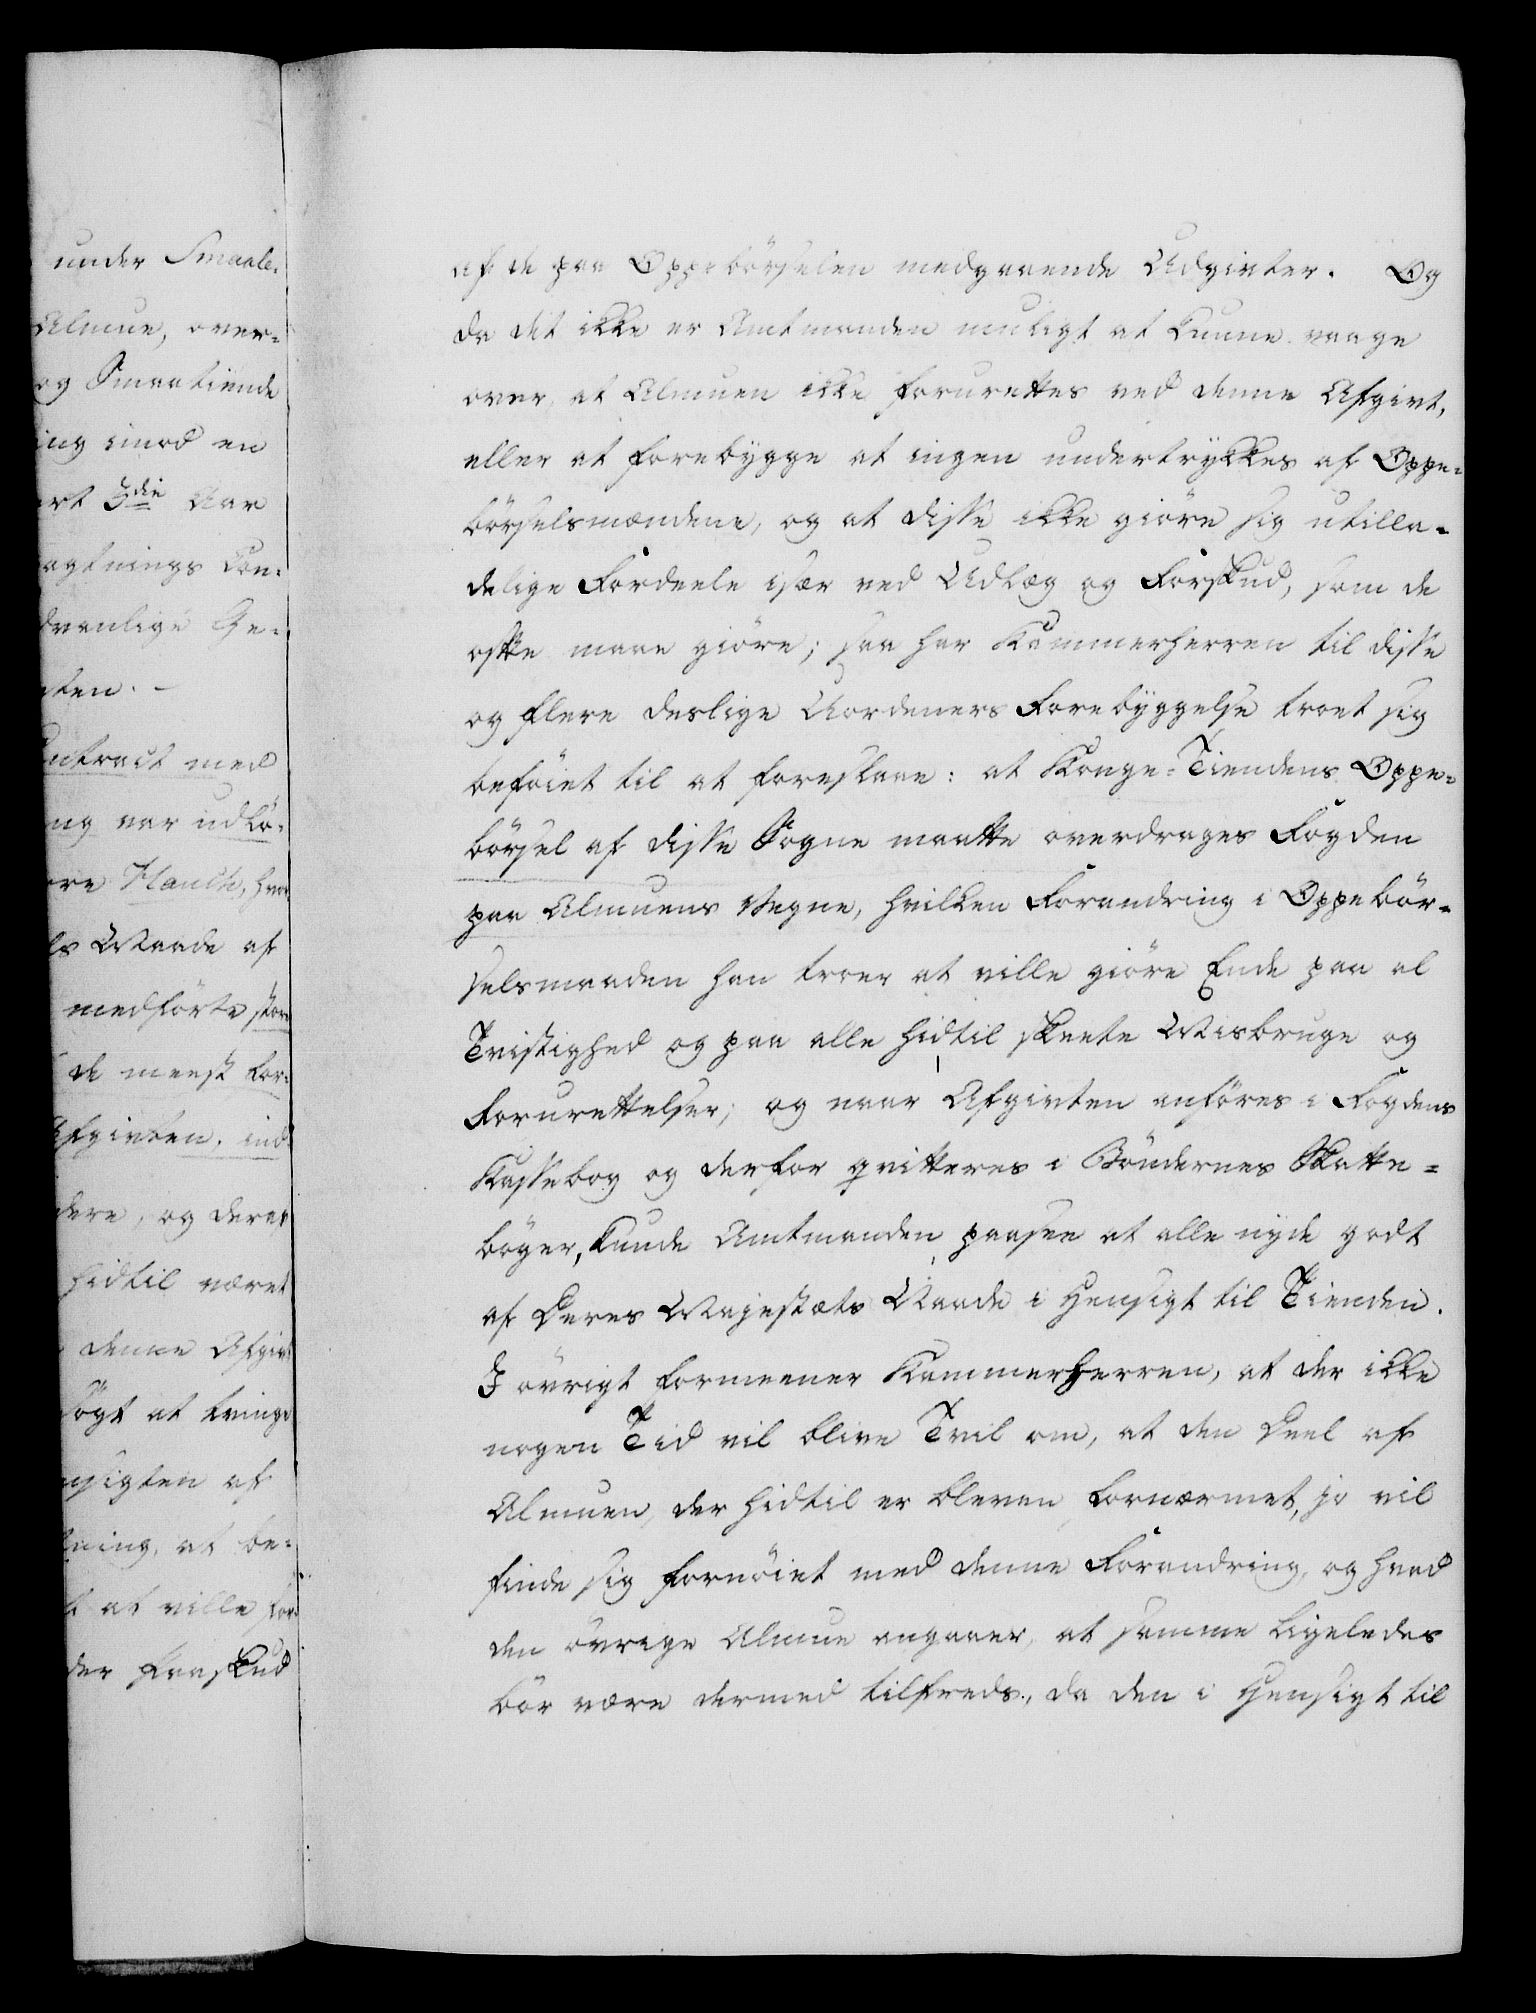 under Smaale-
Almue, over-
og Smaatiende
ing imod en
ert 3die Aar
agtnings Con-
dvanlige Ge-
ten. -
ontract med
ng var udlø-
ere Hauch, hvor
ls Maade af
medførte store
de meest for-
Afgivten, ind-
dere, og deraf
hidtil været
denne Afgivt
søgt at tvinge
nsigten af
ning, at be-
t at ville for-
der Forskud
af de paa Oppebørselen medgaaende Udgivter. Og
da det ikke er Amtmanden muligt at kunne vaage
over, at Almuen ikke forurettes ved denne Afgivt,
eller at forebygge at ingen undertrykkes af Oppe-
børselsmændene, og at disse ikke giøre sig utilla-
delige Fordeele især ved Udlæg og Forskud, som de
ofte maae giøre; saa har Kammerherren til disse
og flere deslige Uordeners Forebyggelse troet sig
beføiet til at foreslaae: at Konge-Tiendens Oppe-
børsel af disse Sogne maatte overdrages Fogden
paa Almuens Vegne, hvilken Forandring i Oppebør-
selsmaaden han troer at ville giøre Ende paa al
Tvistighed og paa alle hidtil skeete Misbruge og
Forurettelser; og naar Afgivten anføres i Fogdens
Kassebog og derfor qvitteres i Bøndernes Skatte-
bøger, kunde Amtmanden paasee at alle nyde godt
af Deres Majestæts Naade i Hensigt til Tienden.
I øvrigt formeener Kammerherren, at der ikke
nogen Tid vil blive Tvil om, at den Deel af
Almuen, der hidtil er bleven fornærmet, jo vil
finde sig fornøiet med denne Forandring, og hvad
den øvrige Almue angaaer, at samme ligeledes
bør være dermed tilfreds, da den i Hensigt til